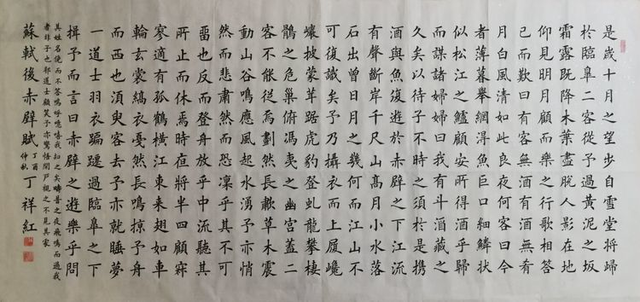 是歲十月之望步自雪堂將歸
於臨皋二客從予過黃泥之坂
霜露既降木葉盡脫人影在地
仰見明月顧而樂之行歌相答
已而歎曰有客無酒有酒無肴
月白風清如此良夜何客曰今
者薄暮舉網得魚巨口細鱗狀
似松江之鱸顧安所得酒乎歸
而謀諸婦婦曰我有斗酒藏之
久矣以待子不時之須於是攜
酒與魚復遊於赤壁之下江流
有聲斷岸千尺山高月小水落
石出曾日月之幾何而江山不
可復識矣予乃攝衣而上履巉
巖披蒙茸踞虎豹登虬龍攀棲
鶻之危巢俯馮夷之幽宮蓋二
客不能從焉劃然長嘯草木震
動山谷鳴應風起水湧予亦悄
然而悲肅然而恐凜乎其不可
留也反而登舟放乎中流聽其
所止而休焉時夜將半四顧寂
寥適有孤鶴橫江東來翅如車
輪玄裳縞衣戛然長鳴掠予舟
而西也須臾客去予亦就睡夢
一道士羽衣蹁躚過臨皋之下
揖予而言曰赤壁之遊樂乎問
其姓名俛而不答嗚呼噫嘻我知之矣疇昔之夜飛鳴而過我
者非子也邪道士顧笑予亦驚悟開戶視之不見其家
蘇軾後赤壁賦 丁酉仲秋 丁祥紅